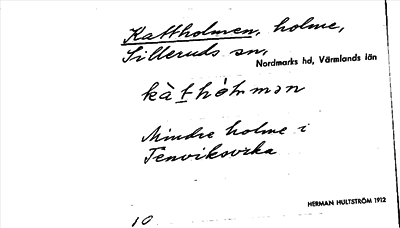 Kattholmen, holme,
Silleruds sn,
Nordmarks hd, Värmlands län
Mindre holme i
HERMAN HULTSTRÖM 1912
10